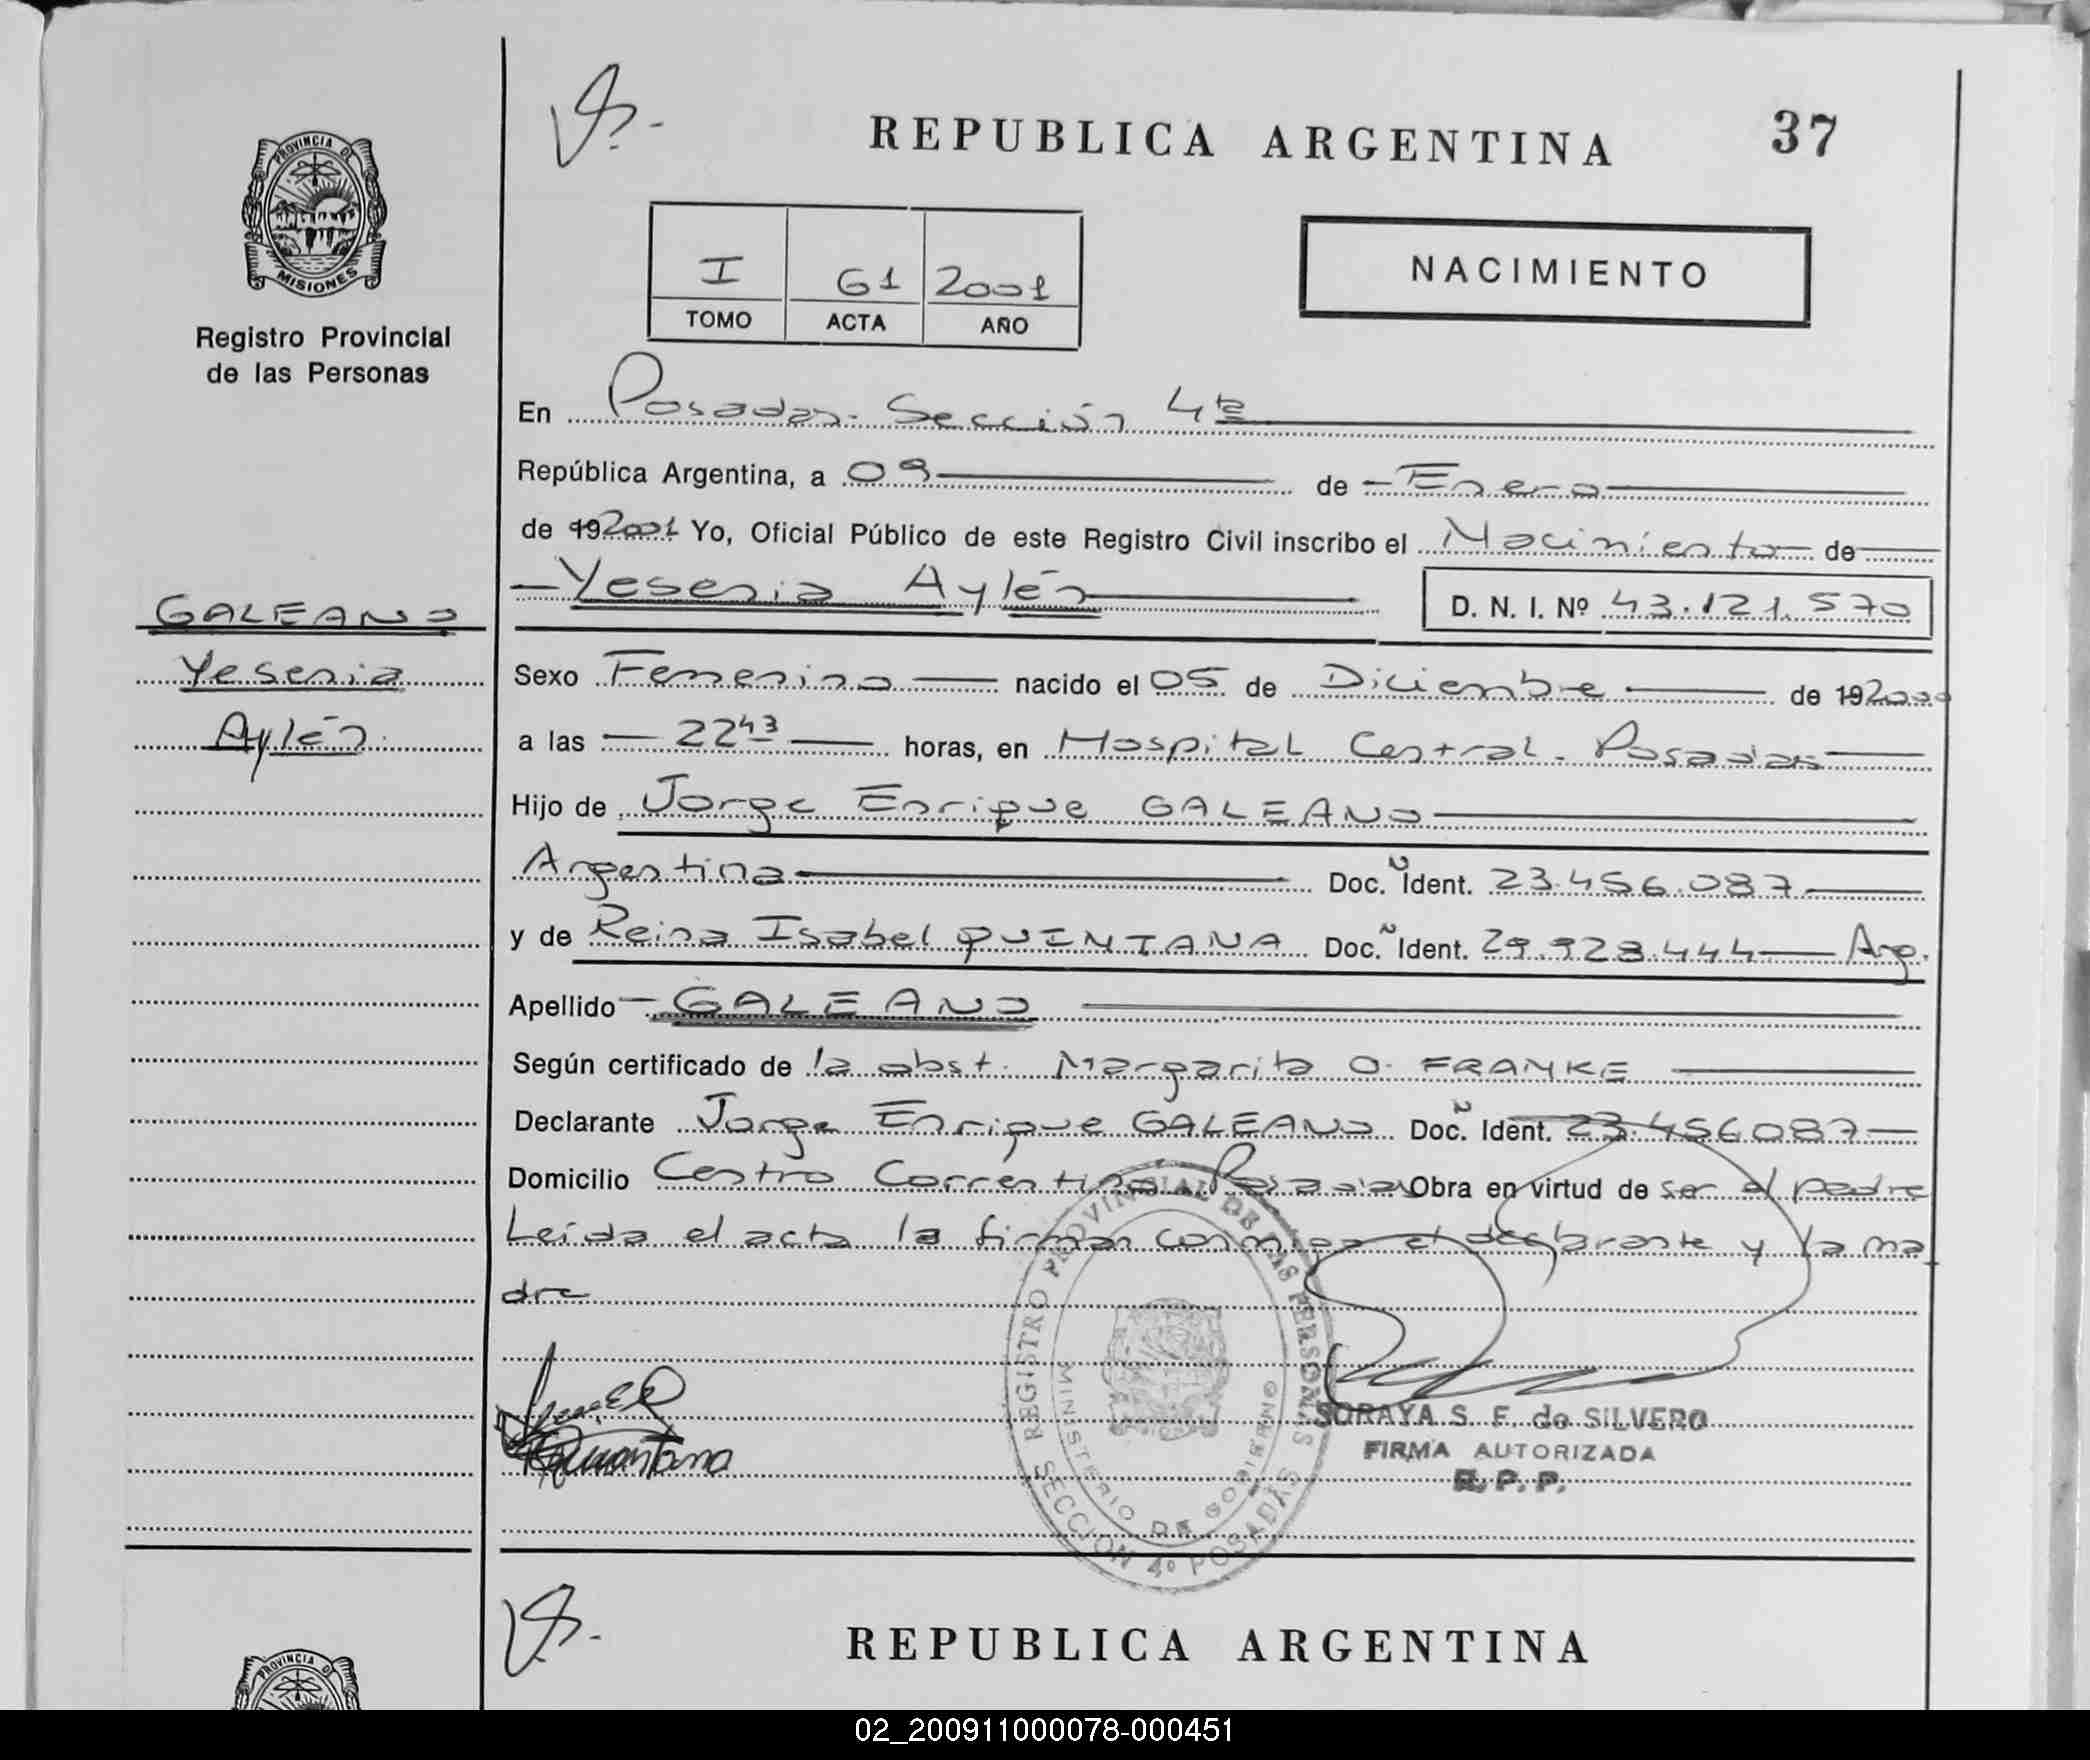 REPUBLICA ARGENTINA 37
PROVINCIA DE
MISIONES
Registro Provincial
de las Personas
I 61 2001
TOMO ACTA AÑO
NACIMIENTO
En Posadas. Sección 4ta
República Argentina, a 09 de Enero
de 19 2001 Yo, Oficial Público de este Registro Civil inscribo el Nacimiento de
Yesenia Aylén D. N. I. Nº 43.121.570
GALEANO
Yesenia
Aylén
Sexo Femenino nacido el 05 de Diciembre de 19 2000
a las 22 43 horas, en Hospital Central. Posadas
Hijo de Jorge Enrique GALEANO
Argentina Doc. Ident. 23.456.087
y de Reina Isabel QUINTANA Doc. Ident. 29.928.444 Arg.
Apellido GALEANO
Según certificado de la obst. Margarita O. FRANKE
Declarante Jorge Enrique GALEANO Doc. Ident. 23.456087
Domicilio Centro Correntino Posadas Obra en virtud de ser el padre
Leída el acta la firman conmigo el declarante y la ma
dre
REGISTRO PROVINCIAL DE LAS PERSONAS
MINISTERIO DE GOBIERNO
SECCION 4º POSADAS
Quintana
SORAYA S. F. de SILVERO
FIRMA AUTORIZADA
R. P. P.
REPUBLICA ARGENTINA
PROVINCIA DE
02_200911000078-000451